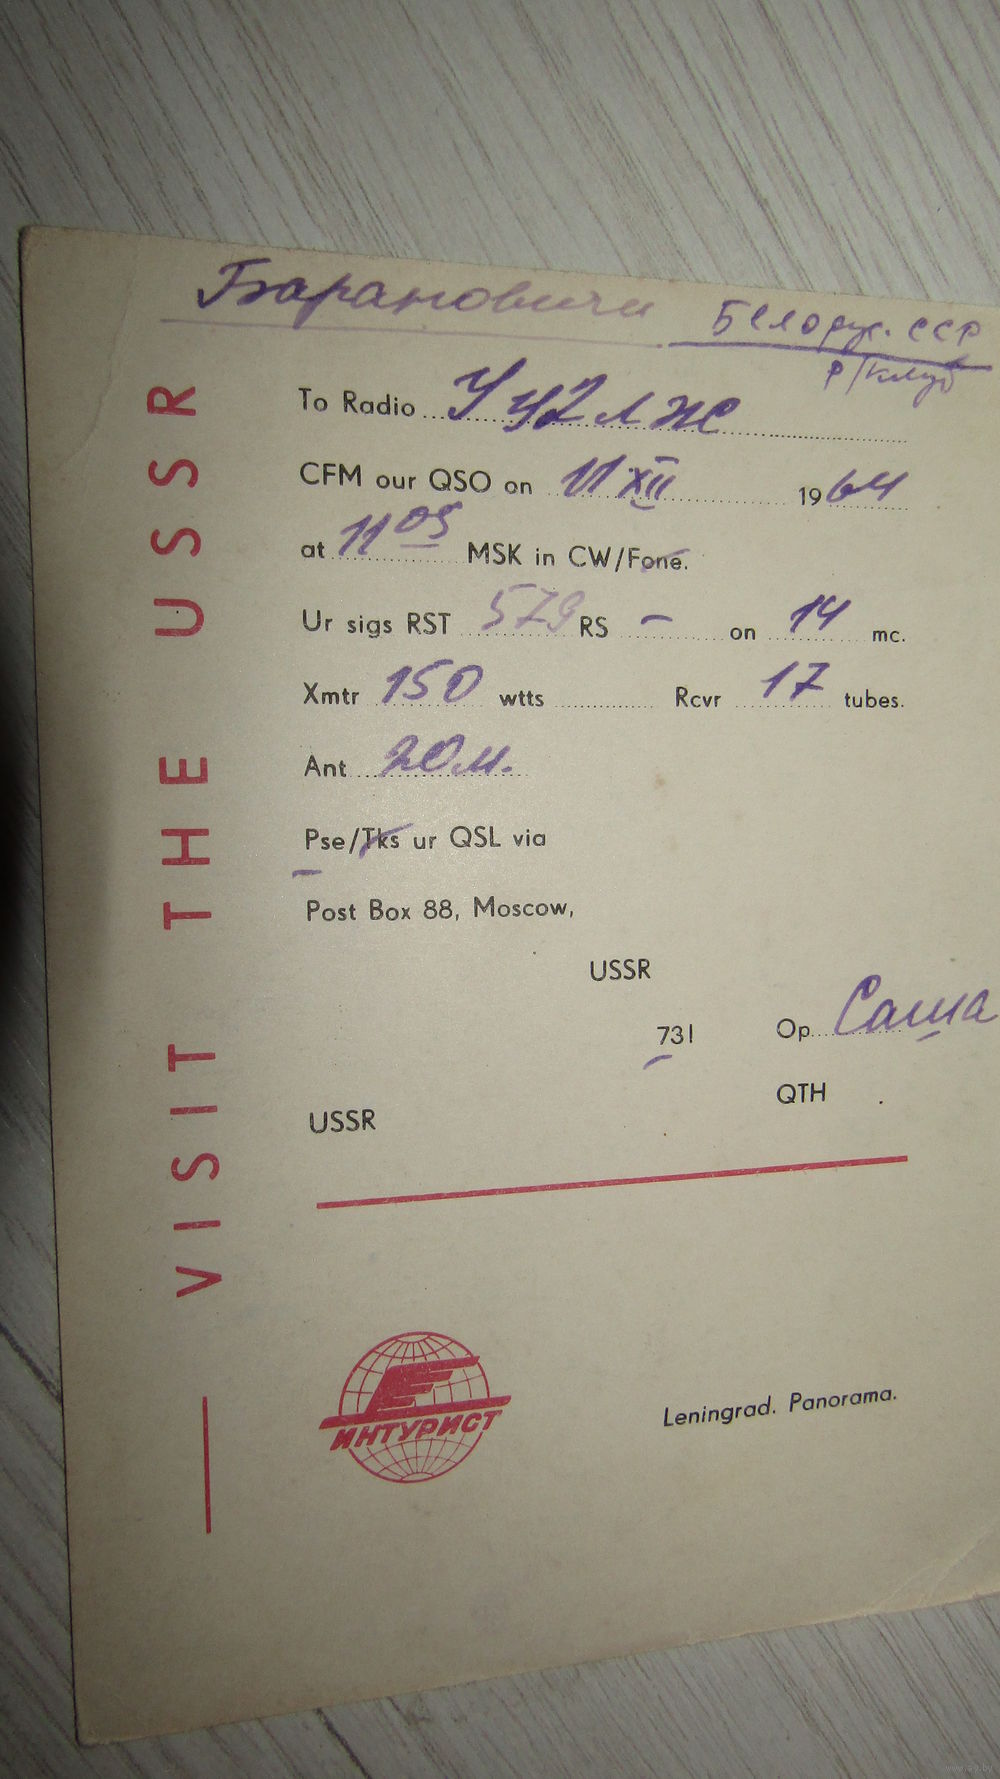 Барановичи Белорус. ССР
р/клуб
To Radio Уц2лже
CFM our QSO on 11 XII 1964
at 11 05 MSK in CW/Fone.
Ur sigs RST 579 RS – on 14 mc.
Xmtr 150 wtts Rcvr 17 tubes.
Ant 20м.
Pse/Tks ur QSL via
Post Box 88, Moscow,
USSR
73! Op Саша
USSR QTH
VISIT THE USSR
ИНТУРИСТ
Leningrad. Panorama.